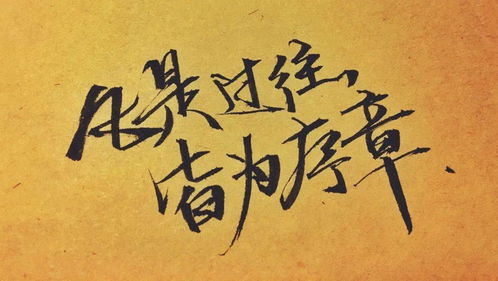 凡是过往,
皆为序章.